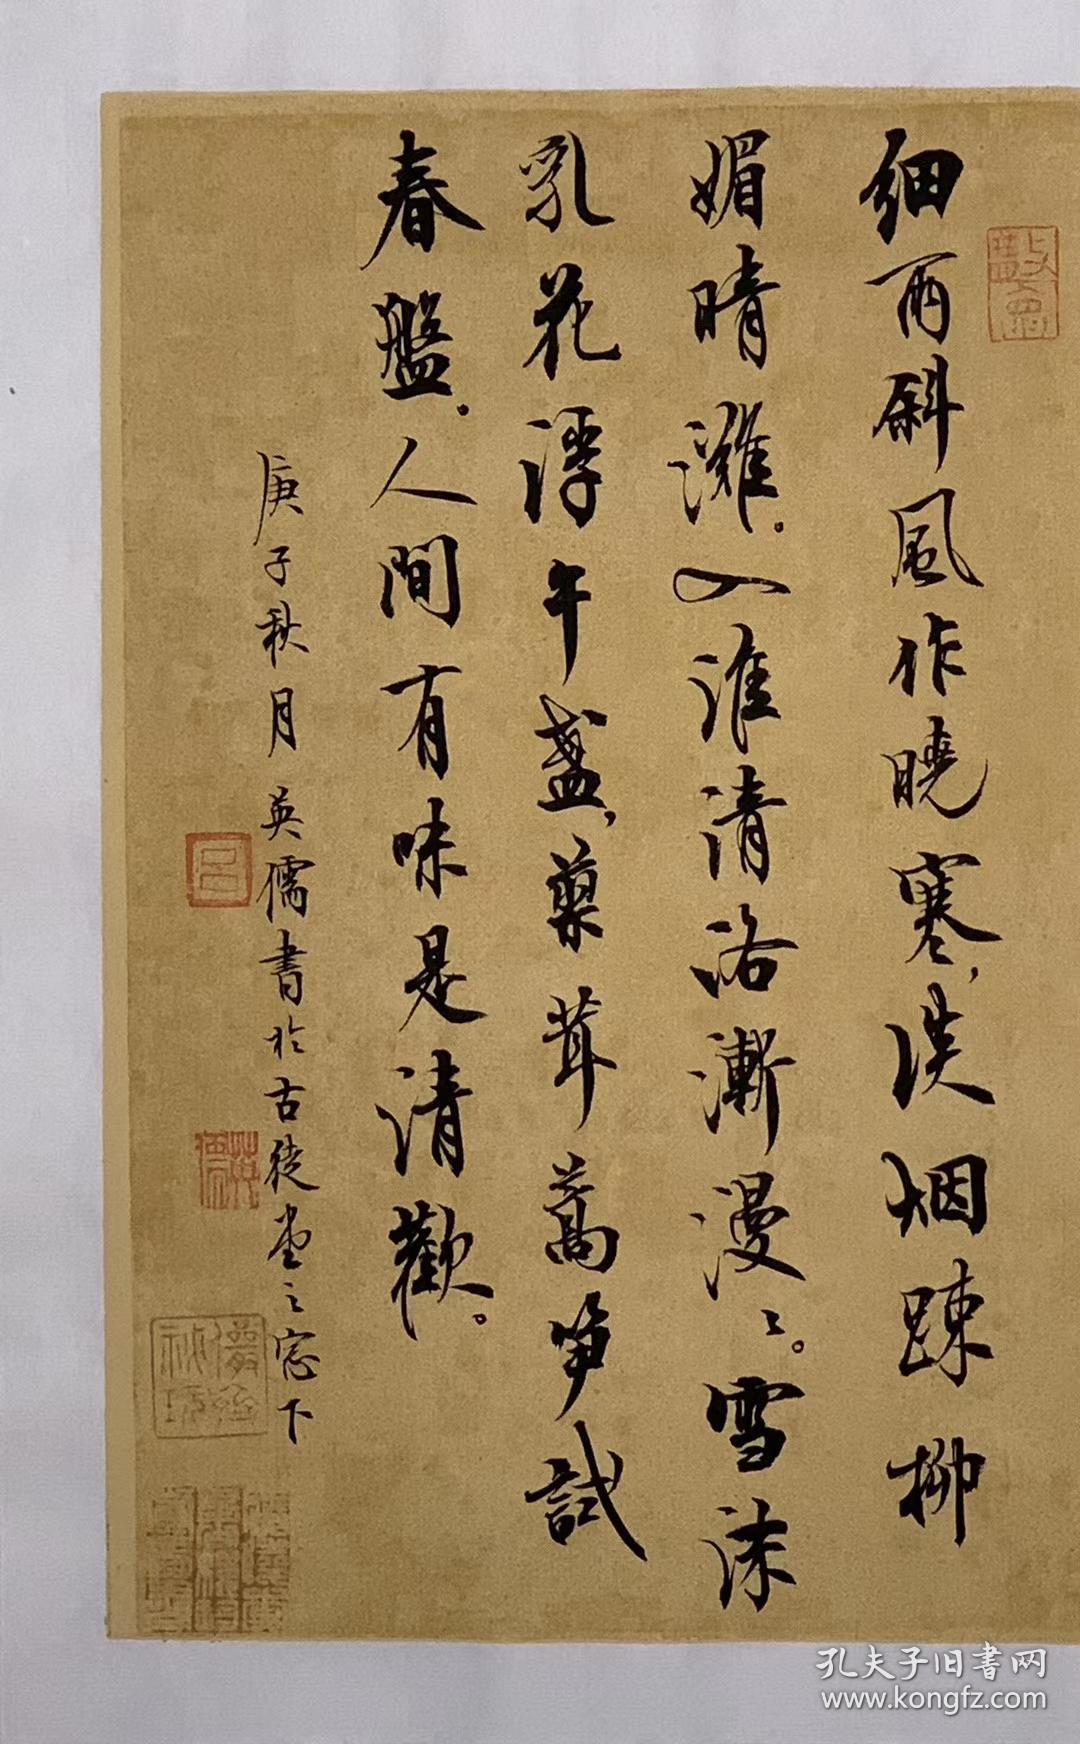 细雨斜風作曉寒，淡烟疎柳
媚晴灘。入淮清洛漸漫〻。雪沫
乳花浮午盏，蓼茸蒿笋試
春盤。人間有味是清歡。
庚子秋月英儒書於古徒堂之窓下
吕
英儒
孔夫子旧書网
www.kongfz.com